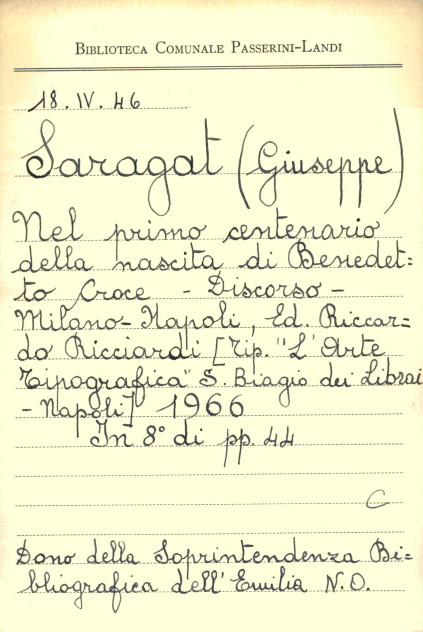 BIBLIOTECA COMUNALE PASSERINI-LANDI
18. IV. 46
Saragat (Giuseppe)
Nel primo centenario
della nascita di Benedet=
to Croce - Discorso -
Milano-Napoli, Ed. Riccar=
do Ricciardi [Tip. "L'Arte
Tipografica" S. Biagio dei Librai
- Napoli] 1966
In 8° di pp. 44
C
Dono della Soprintendenza Bi=
bliografica dell'Emilia N.O.